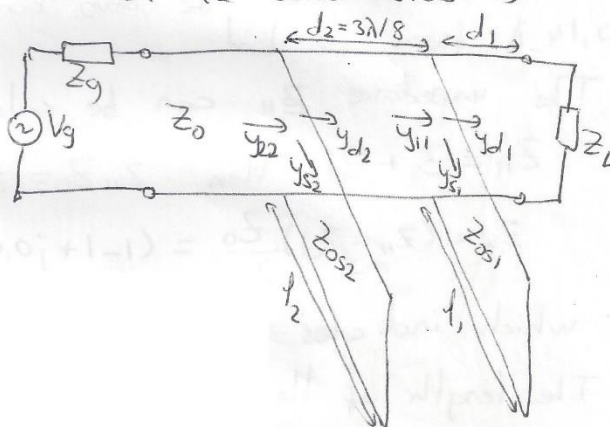 d₂ = 3λ/8
d₁
Zg
Vg
Z₀
y₂₂
yd₂
y₁₁
yd₁
ys₂
ys₁
ZL
Z₀s₂
Z₀s₁
l₂
l₁